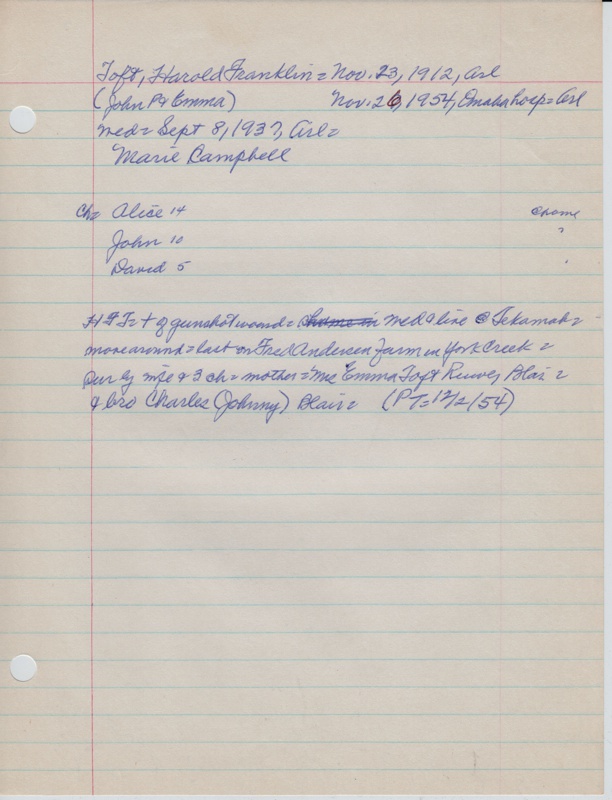 Toft, Harold Franklin = Nov. 23, 1912, Arl
(John P & Emma) Nov. 26, 1954, Omaha hosp = Arl
Med = Sept 8, 1937, Arl =
Marie Campbell
Ch = Alice 14 @ home
John 10 "
David 5 "
HFT = + of gunshot wound = med & live @ Tekamah =
move around = last on Fred Andersen farm in York Creek =
Sur by wife & 3 ch = mother = Mrs Emma Toft Reeves, Blair =
& bro Charles (Johnny) Blair = (PT = 12/2/54)